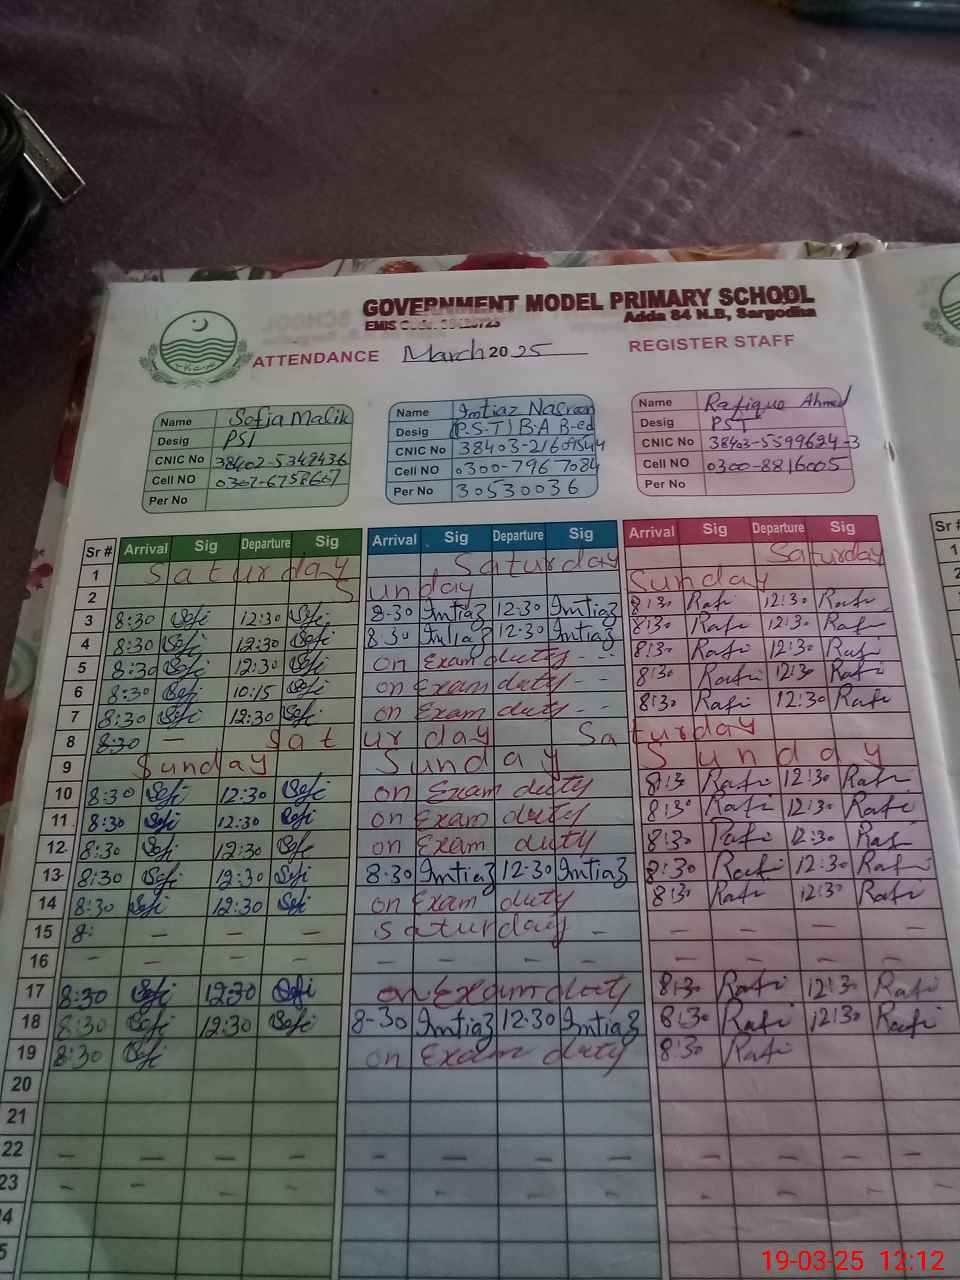 GOVERNMENT MODEL PRIMARY SCHOOL
EMIS Adda 84 N.B, Sargodha
ATTENDANCE March 2025 REGISTER STAFF
Name Sofia Malik
Desig PST
CNIC No
Cell NO
Per No
Name Imtiaz Nasreen
Desig (P.S.T) B.A B-ed
CNIC No
Cell NO 0300-7967084
Per No 30530036
Name Rafique Ahmed
Desig PST
CNIC No 38403-5599624-3
Cell NO 0300-8816005
Per No
Sr # Arrival Sig Departure Sig Arrival Sig Departure Sig Arrival Sig Departure Sig
1 Saturday Saturday Saturday
2 Sunday Sunday
3 8:30 Sofi 12:30 Sofi 8-30 Imtiaz 12-30 Imtiaz 8:30 Rafi 12:30 Rafi
4 8:30 Sofi 12:30 Sofi 8-30 Imtiaz 12-30 Imtiaz 8:30 Rafi 12:30 Rafi
5 8:30 Sofi 12:30 Sofi on Exam duty - - 8:30 Rafi 12:30 Rafi
6 8:30 Sofi 10:15 Sofi on Exam duty - - 8:30 Rafi 12:30 Rafi
7 8:30 Sofi 12:30 Sofi on Exam duty - - 8:30 Rafi 12:30 Rafi
8 8:30 — Saturday Saturday
9 Sunday Sunday Sunday
10 8:30 Sofi 12:30 Sofi on Exam duty 8:3 Rafi 12:30 Rafi
11 8:30 Sofi 12:30 Sofi on Exam duty 8:30 Rafi 12:30 Rafi
12 8:30 Sofi 12:30 Sofi on Exam duty 8:30 Rafi 12:30 Rafi
13 8:30 Sofi 12:30 Sofi 8-30 Imtiaz 12-30 Imtiaz 8:30 Rafi 12:30 Rafi
14 8:30 Sofi 12:30 Sofi on Exam duty 8:30 Rafi 12:30 Rafi
15 8: — — — Saturday — — — — —
16 — — — — — — — — — — — —
17 8:30 Sofi 12:30 Sofi on Exam duty 8:30 Rafi 12:30 Rafi
18 8:30 Sofi 12:30 Sofi 8-30 Imtiaz 12-30 Imtiaz 8:30 Rafi 12:30 Rafi
19 8:30 Sofi on Exam duty 8:30 Rafi
20
21
22 — — — — — — — — — — — —
23 — — — — — — — — — — — —
4
5
Sr #
1
2
19-03-25 12:12